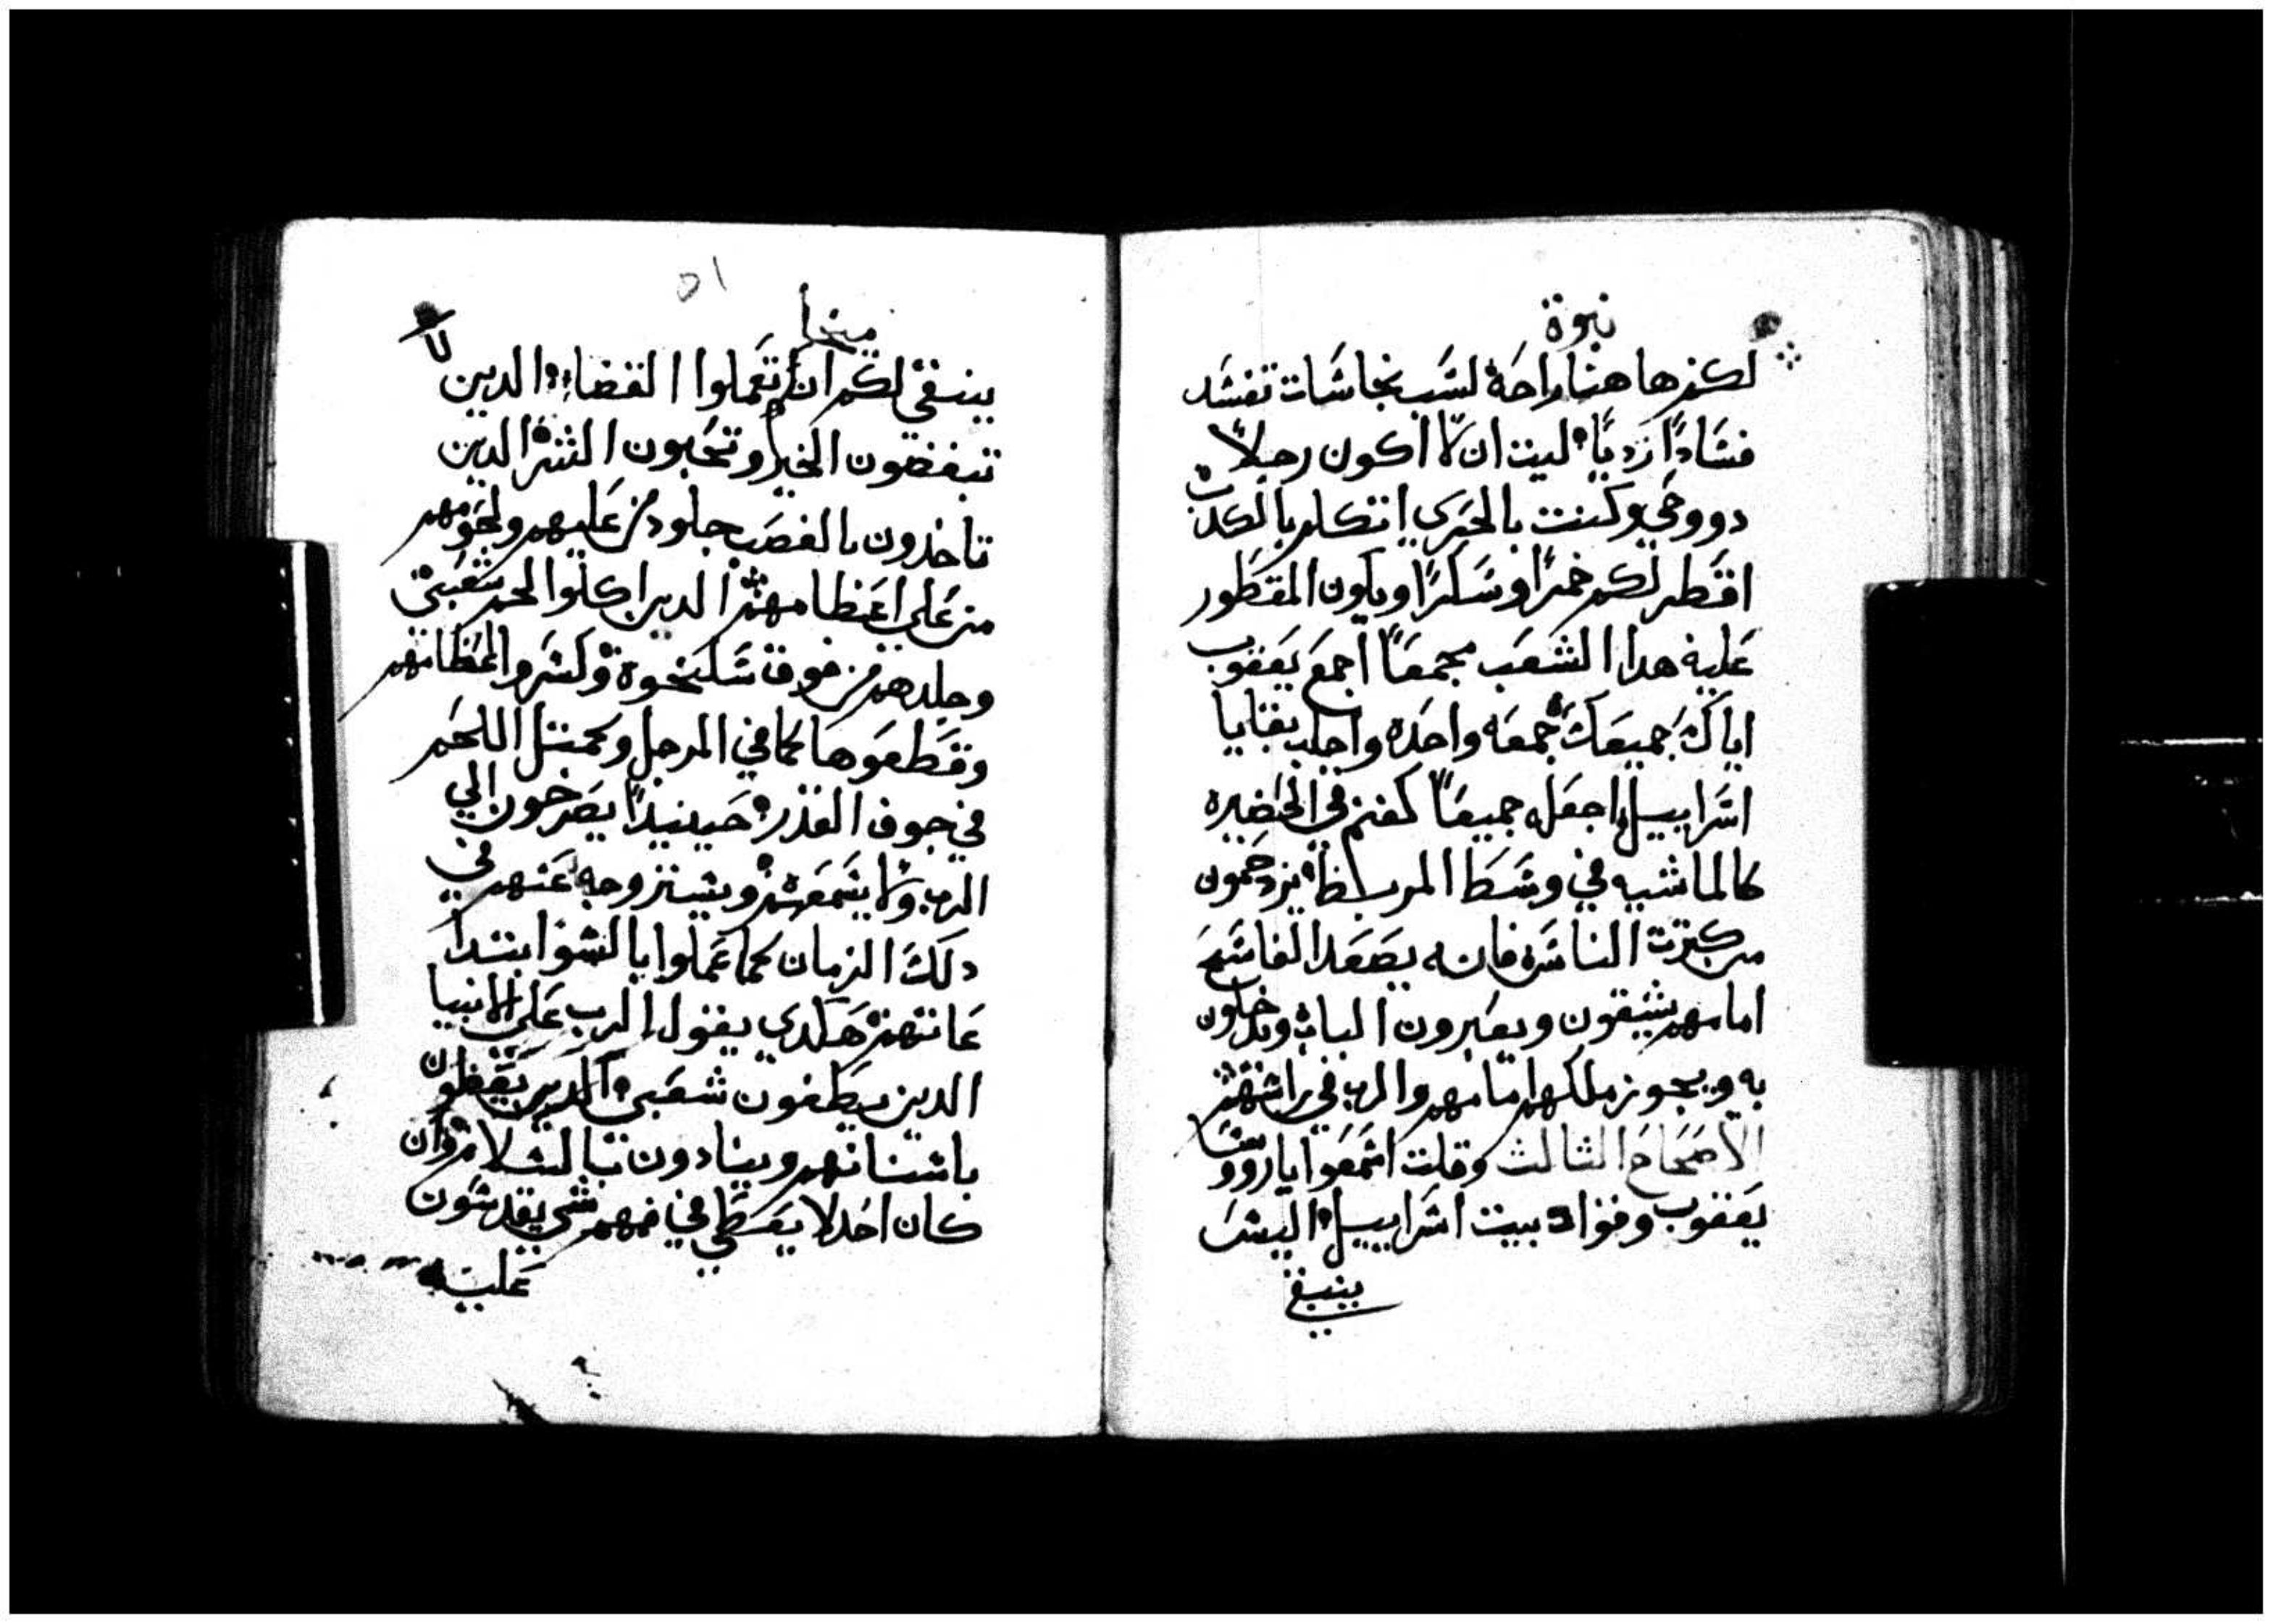 نبوة
لكم هاهنا راحة لسبب نجاسات تفسد
فسادًا رديًا ليت ان لا اكون رجلًا
دو وحي وكنت بالحري اتكلم بالكدب
اقطر لكم خمرًا وسكرًا ويكون المقطور
عليه هدا الشعب مجمعًا اجمع يعقوب
اياك جميعك جمعه واحده واجلب بقايا
اسراييل اجعله جميعًا كغنم في الحضيره
كالماشيه في وسط المرابط يزدحمون
من كترت الناس فانه يصعد الفاسح
امامهم يشقون ويعبرون الباب ويدخلون
به ويجوز ملكهم امامهم والرب في راسهم
الاصحاح الثالث وقلت اسمعوا ياروسا
يعقوب وقواد بيت اسراييل اليس
ينبغي
٥١
ميخا
ينبغي لكم ان تعملوا القضا الدين
تبغضون الخير وتحبون الشر الدين
تاخدون بالغصب جلودهم عليهم ولحومهم
من علي اعظامهم الدين اكلوا لحم شعبي
وجلدهم من فوق سلخوه وكسروا اعظامهم
وقطعوها كما في المرجل وكمتل اللحم
في جوف القدر حينيدًا يصرخون الي
الرب ولا يسمعهم ويستر وجهه عنهم في
دلك الزمان كما عملوا بالسوا بتدا
عاتهم هكدي يقول الرب علي الانبيا
الدين يطغون شعبي الدين يعظون
باسنانهم وينادون بالسلام وان
كان احد لا يعطي في فمهم شي يقدسون
عليه